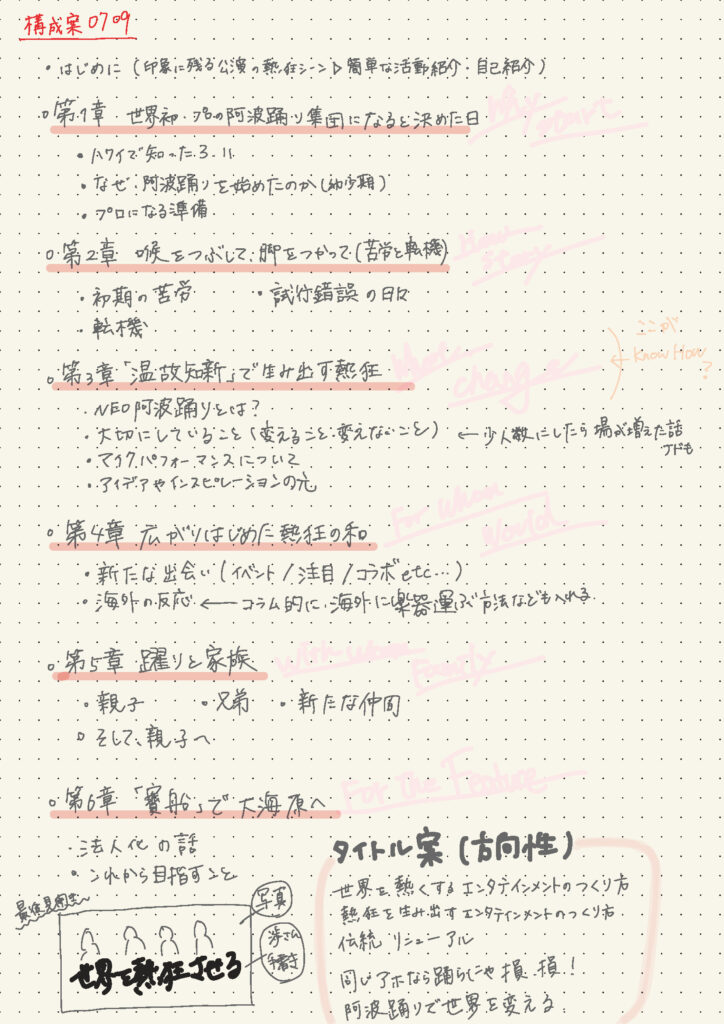 構成案0709
・はじめに（印象に残る公演の熱狂シーン▷簡単な活動紹介・自己紹介）
○第1章 世界初・プロの阿波踊り集団になると決めた日
Why start
・ハワイで知った3.11
・なぜ阿波踊りを始めたのか（幼少期）
・プロになる準備
○第2章 喉をつぶして、脚をつかって（苦労と転機）
How
・初期の苦労 ・試行錯誤の日々
・転機
○第3章「温故知新」で生み出す熱狂
What change
ここが
Know How
?
・NEO阿波踊りとは？
・大切にしていること（変えること・変えないこと） ←少人数にしたら場が増えた話
・マイクパフォーマンスについて
・アイデアやインスピレーションの元
○第4章 広がりはじめた熱狂の和
For whom
World
・新たな出会い（イベント/注目/コラボetc...）
・海外の反応 ←コラム的に、海外に楽器運ぶ方法なども入れる
○第5章 躍りと家族
With whom
Family
・親子 ・兄弟 ・新たな仲間
○そして、親子へ
○第6章「寶船」で大海原へ
For the Feature
・法人化の話
・これから目指すこと
最後見開き
写真
手書き
世界を熱狂させる
タイトル案（方向性）
世界を熱くするエンタテインメントのつくり方
熱狂を生み出すエンタテインメントのつくり方
伝統リニューアル
同じアホなら踊らにゃ損、損！
阿波踊りで世界を変える